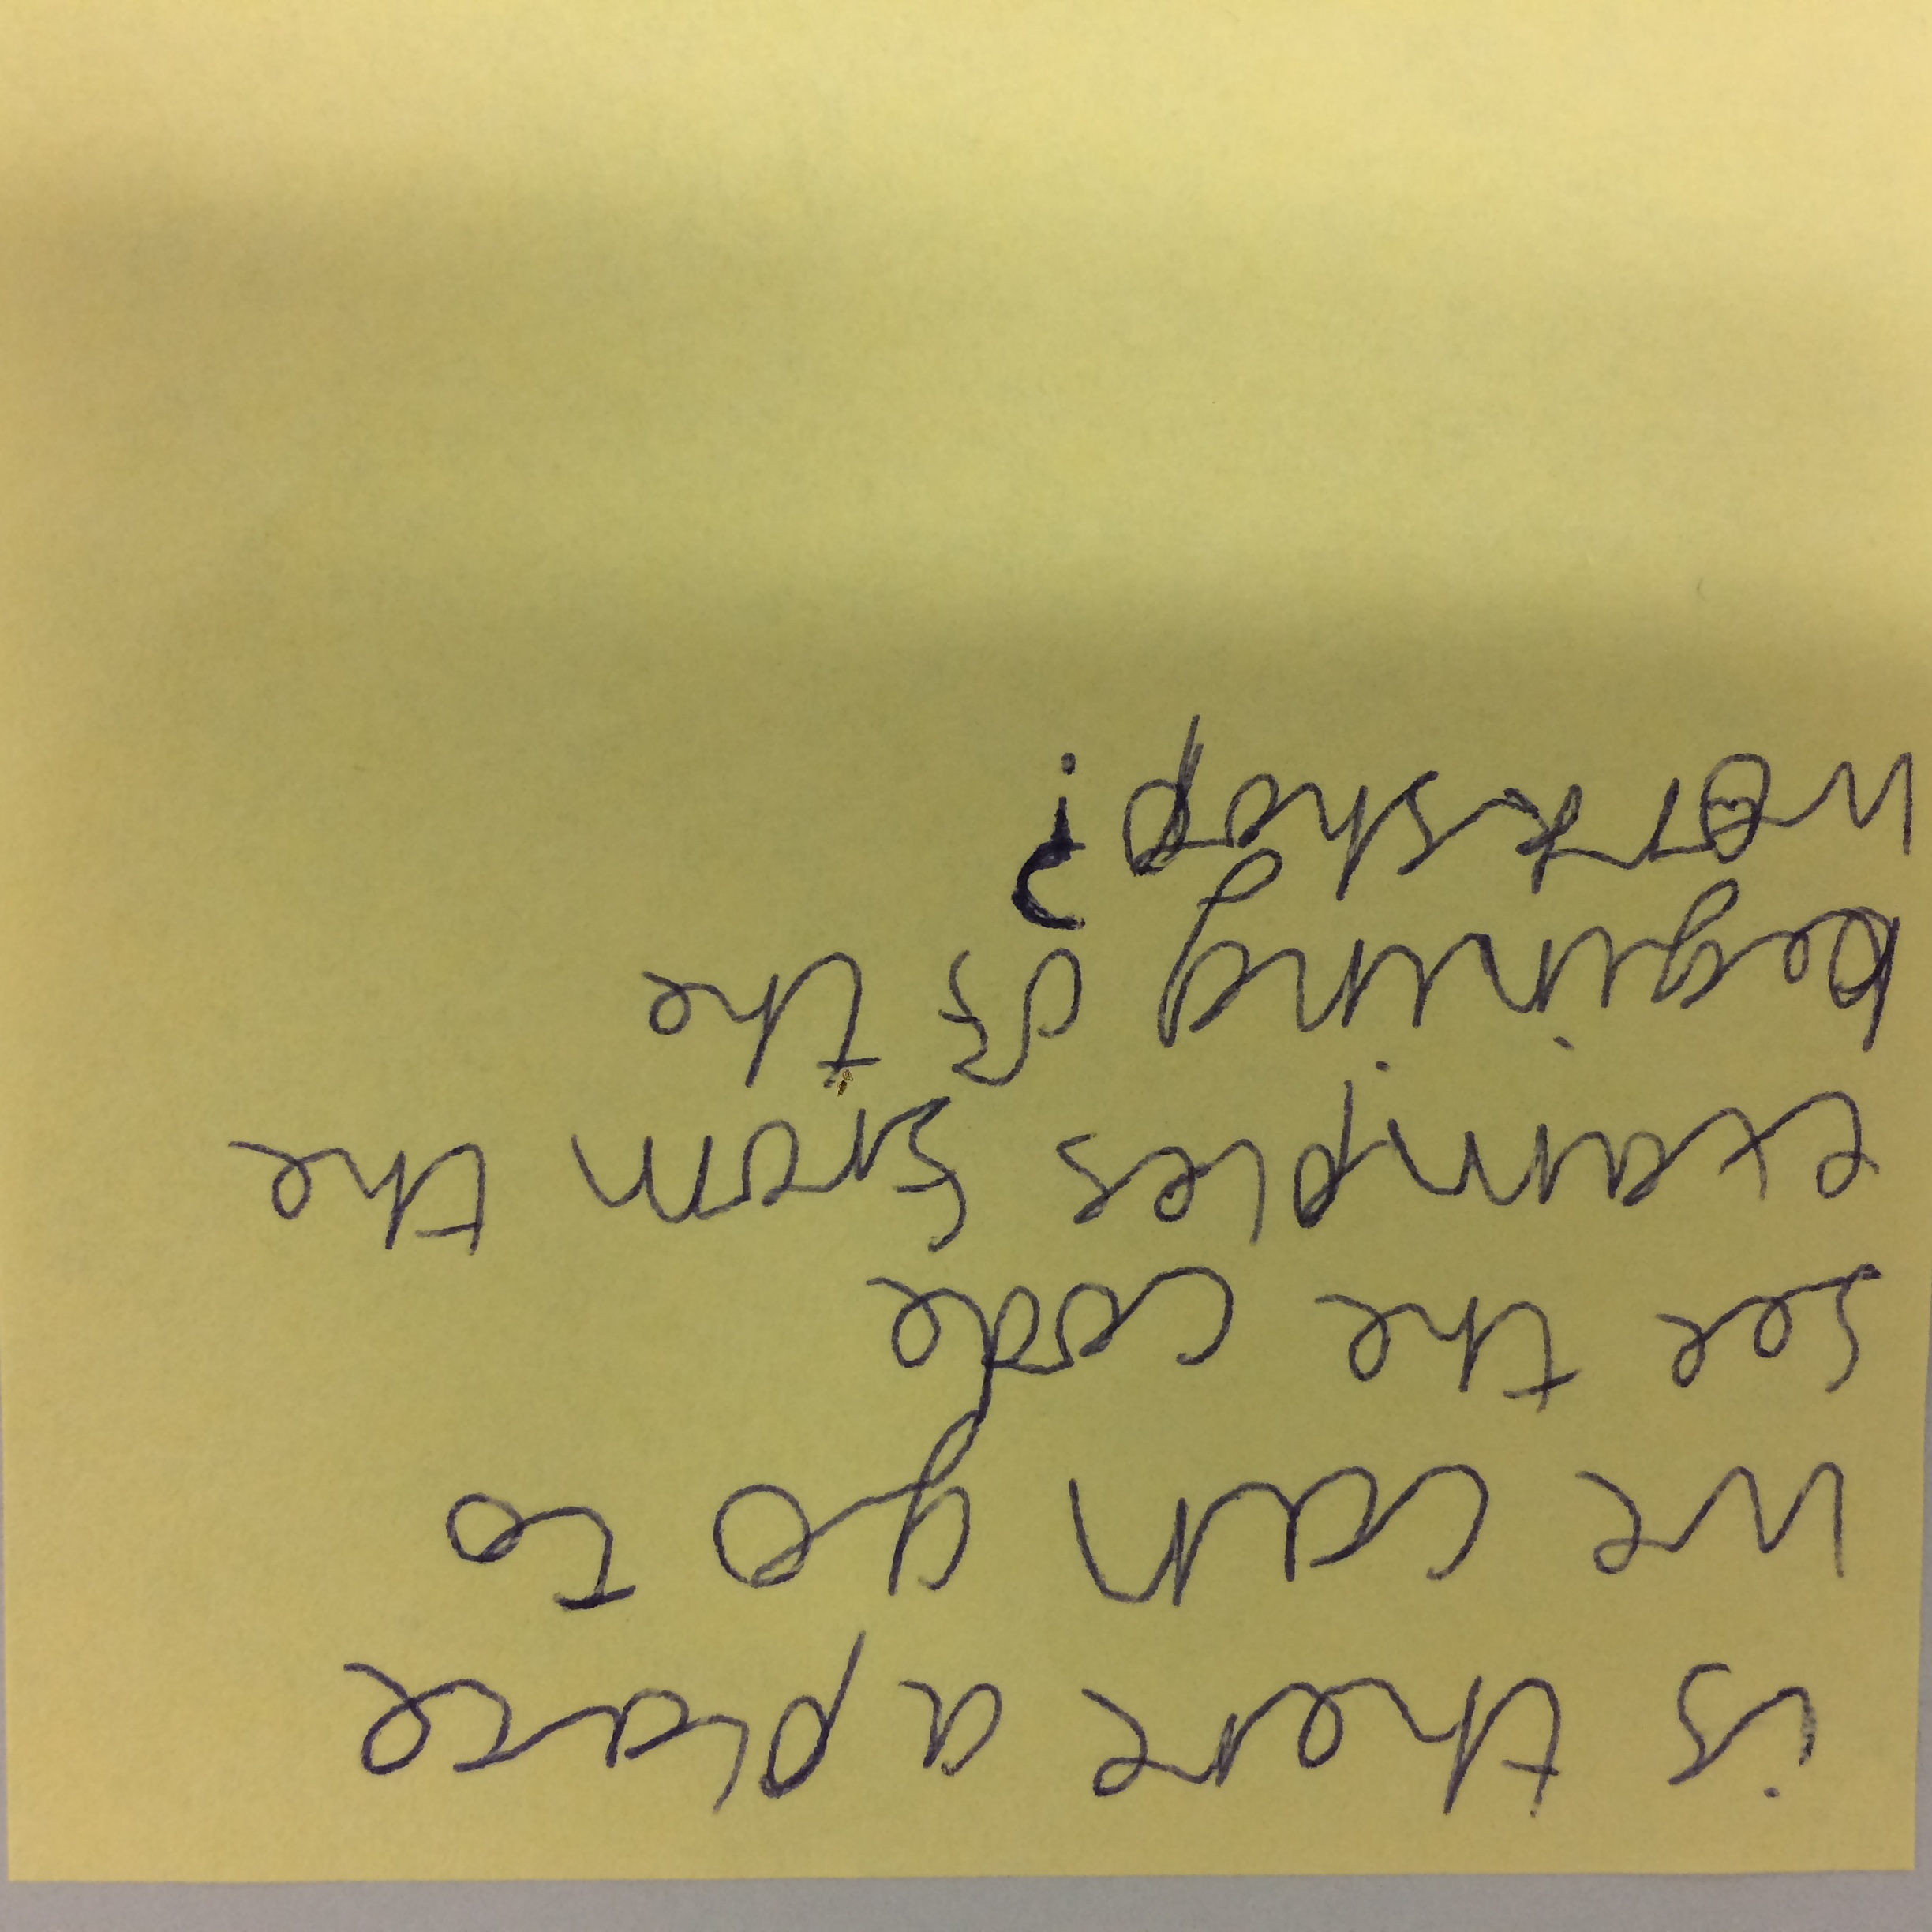 is there a place
we can go to
see the code
examples from the
begining of the
workshop?